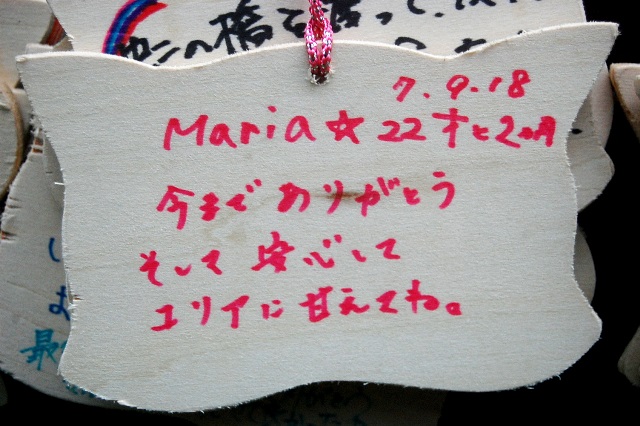 虹の橋を渡って
7.9.18
Maria☆22才と2ヶ月
今までありがとう
そして安心して
ユリイに甘えてね。
最